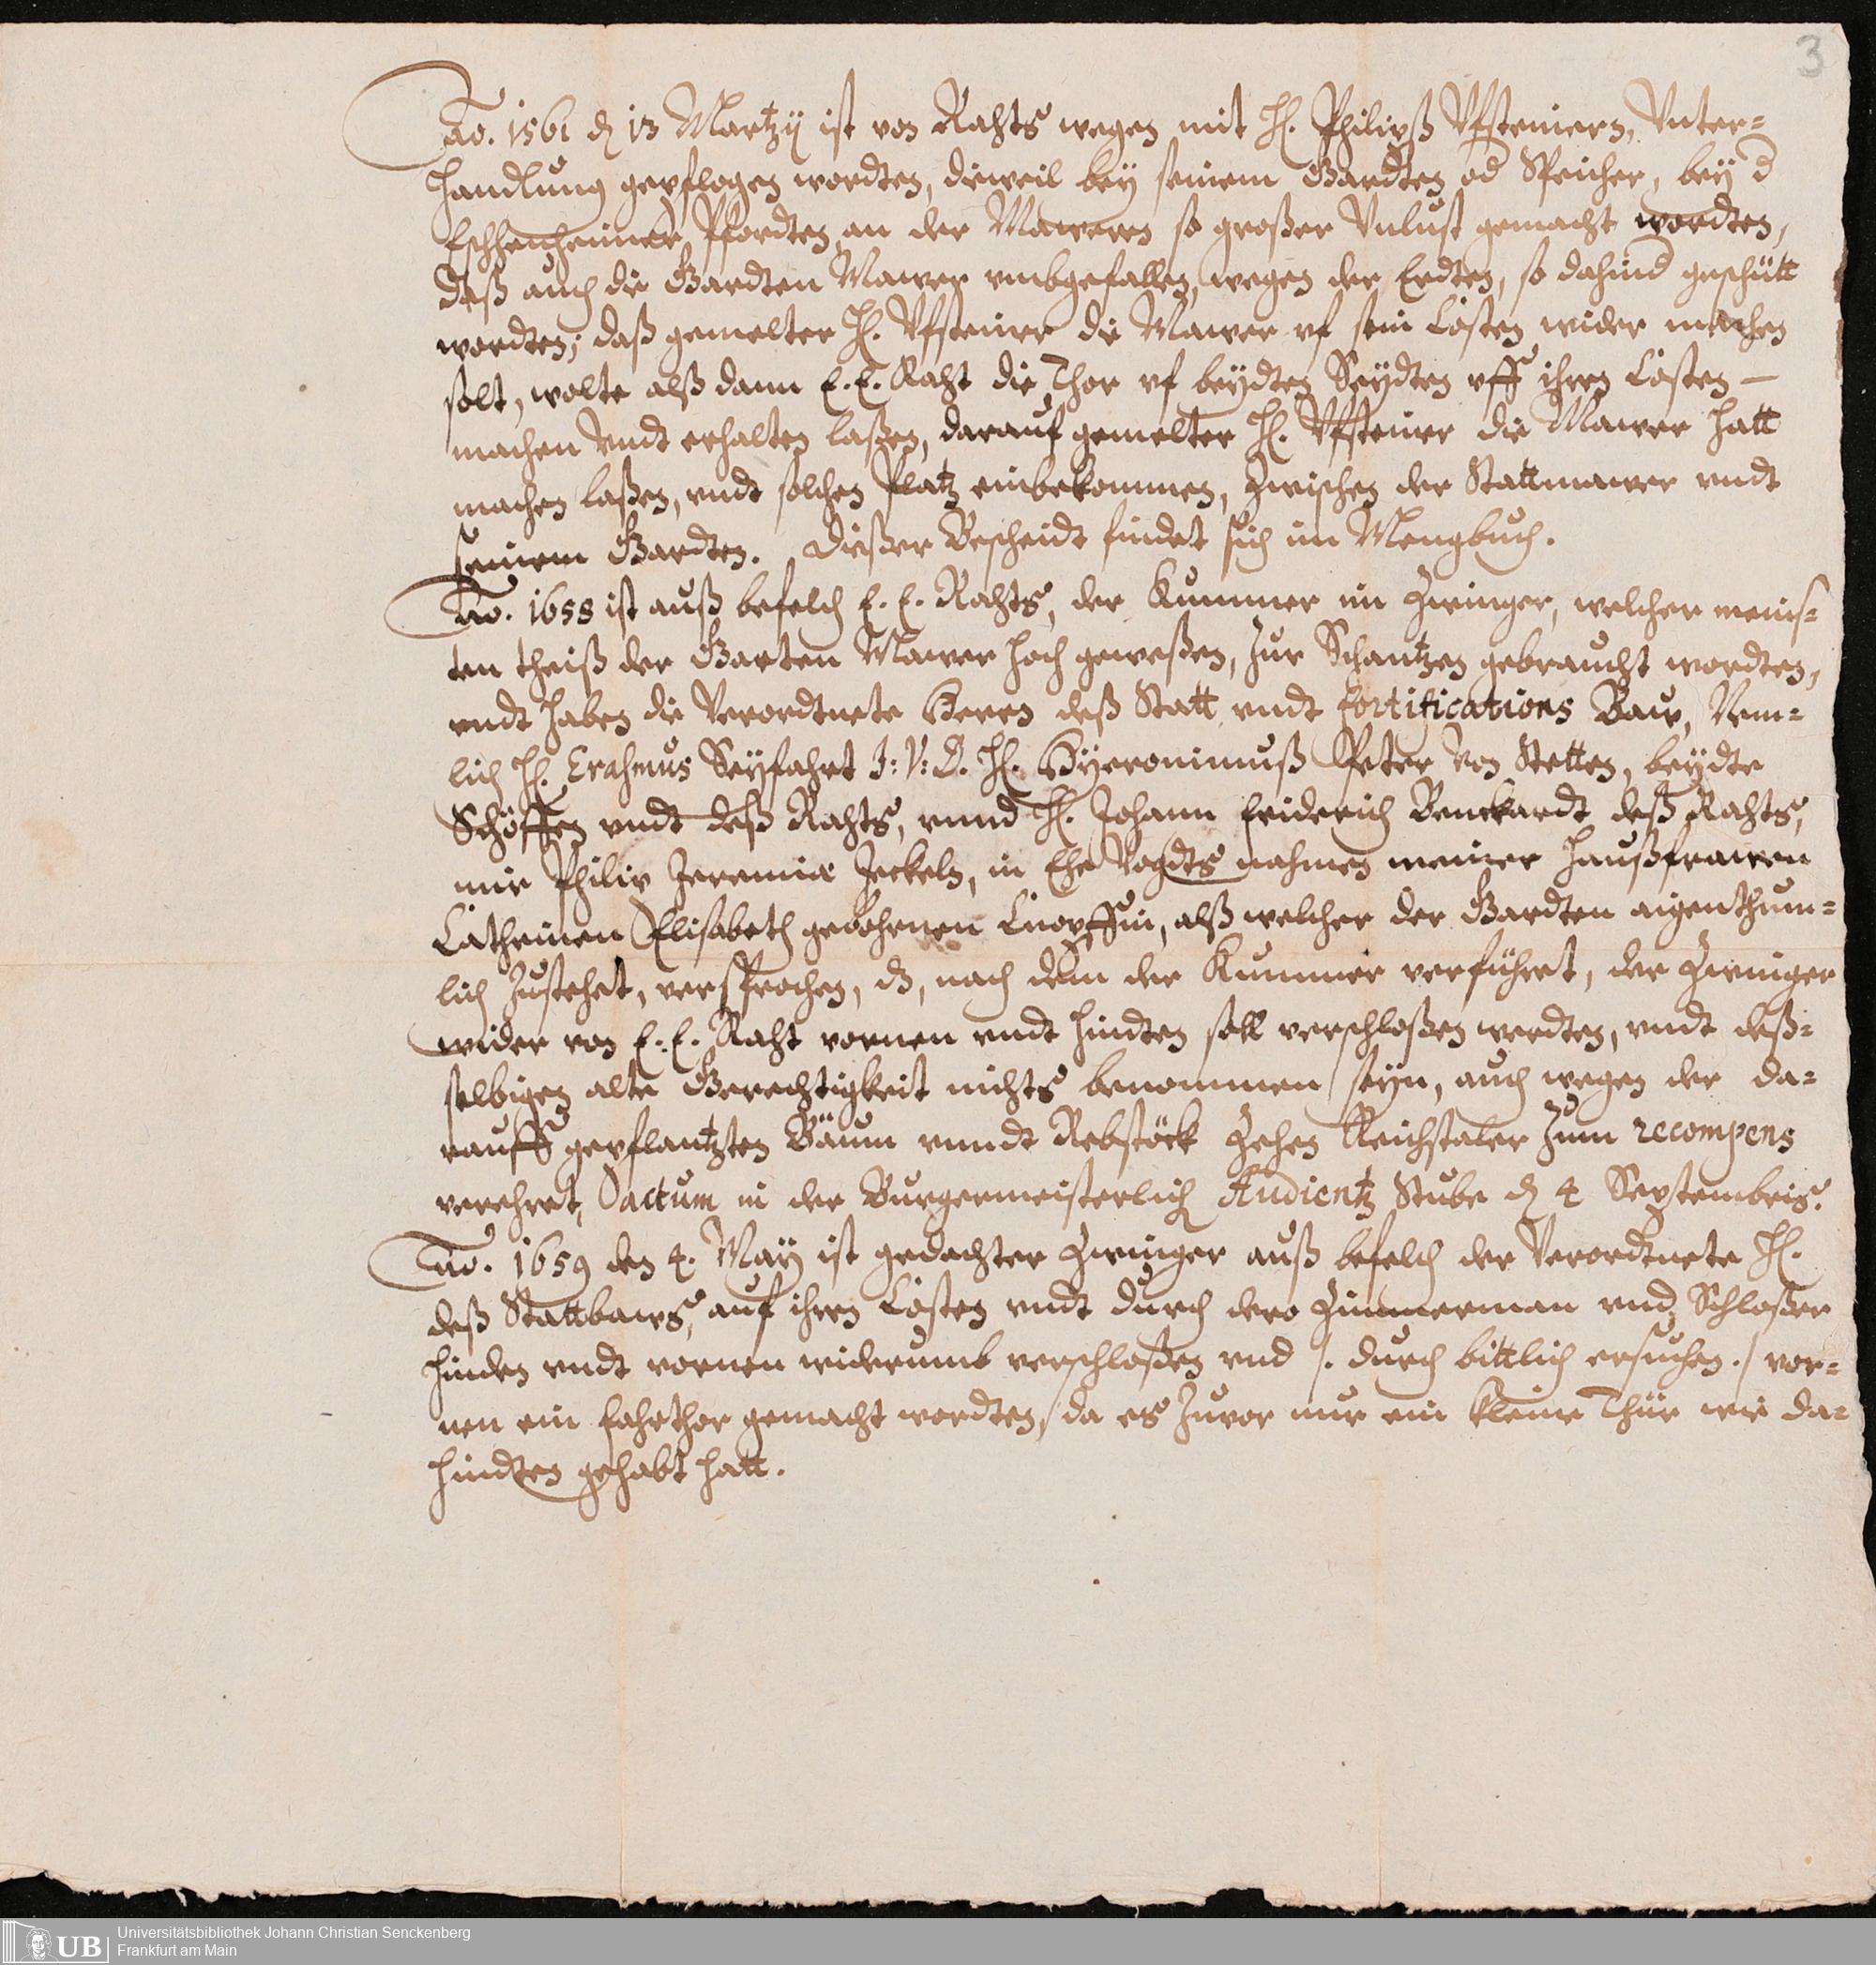 3
Ao. 1561 den 13 Martzÿ ist von Rahts wegen mit H. Philipß Uffsteinern, Unter=
handlung gepflogen wordten, dieweil bey seinem Gardten od Speicher, bey d
Eschenheimer Pfordten, an der Mawren so großer Unlust gemacht wordten,
deß auch die Gardten Mawer umbgefallen, wegen der Erdten, so dahind geschütt
wordten; daß gemelter H. Uffsteiner die Mawer uf sein Costen wider machen
solt, wolte alß dann E. E. Raht die Thor uf beydten Seydten uff ihren Costen —
machen undt erhalten laßen, darauf gemelter H. Uffsteiner die Mawer hatt
machen laßen, undt solchen Platz einbekommen, zwischen der Stattmawer undt
seinem Gardten. Dießer Bescheidt findet sich im Mengbuch.
Ao. 1658 ist auß befelch E. E. Rahts, der Kummer im Zwinger, welcher meins=
ten theilß der Garten Mawer hoch geweßen, zur Schantzen gebraucht wordten,
undt haben die Verordtnete Herren deß Statt undt fortifications Baw, Nem=
lich H. Erasmus Seyfahrt J: U: D. H. Hyeronimuß Peter von Stetten, beydte
Schöffen undt deß Rahts, unnd H. Johann Friderich Benckardt deß Rahts,
mir Philip Jeremiæ Jeckeln, in Ehe Vogdts nahmen meiner Haußfrawen
Catheinen Elisabeth gebohrnen Knopffin, alß welcher der Gardten aigenthum=
lich zustehet, versprochen, dz, nach dem der Kummer verführet, der Zwinger
wider von E. E. Raht vornen undt hindten soll verschloßen werdten, undt deß=
selbigen alte Gerechtigkeit nichts benommen seyn, auch wegen der da=
rauff gepflantzten Bäum unndt Rebstöck Zehen Reichstaler zum recompens
verehret, actum in der Burgermeisterlich Audientz Stube den 4 Septembris.
Ao. 1659 den 4. May ist gedachter Zwinger auß befelch der Verordtnete H.
deß Stattbaws, auf ihren Costen undt durch dero Zimmerman und Schloßer
hinden undt vornen widerumb verschloßen und /. durch bittlich ersuchen ./ vor=
nen ein fahrthor gemacht wordten, da es zuvor nur ein kleine Thür wie da=
hindten gehabt hatt.
UB Universitätsbibliothek Johann Christian Senckenberg
Frankfurt am Main